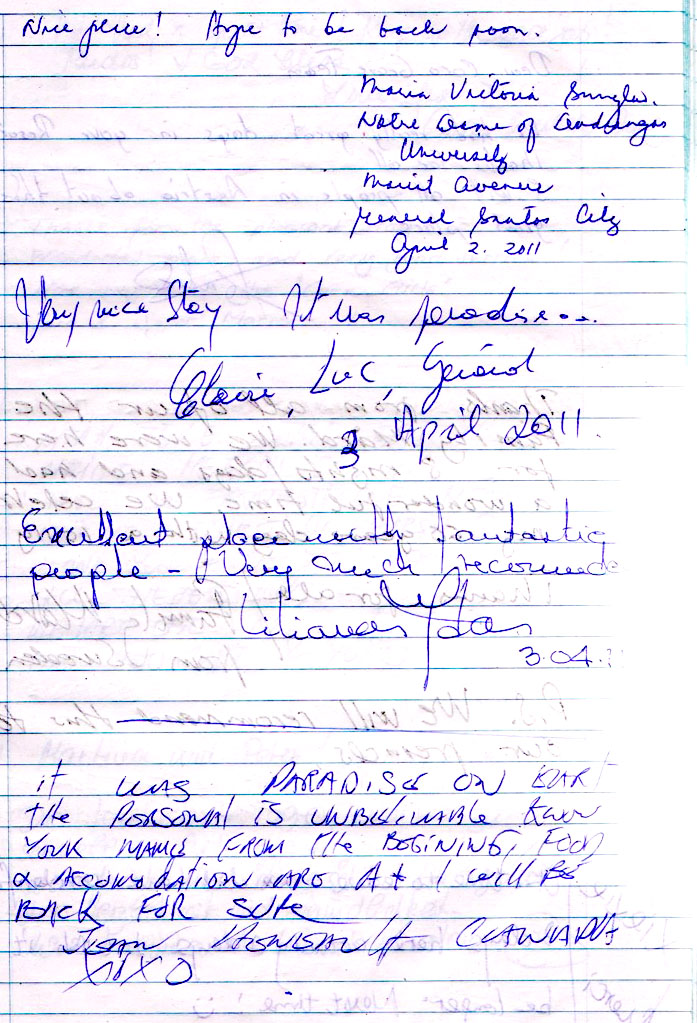 Nice place! Hope to be back soon.
Maria Victoria
Notre Dame of Dadiangas
University
Marist Avenue
General Santos City
April 2. 2011
Very nice Stay It was paradise...
Claire, Luc, Gérard
3 April 2011.
Excellent place with fantastic
people - Very much recommende
Liliana
3.04.
it was PARADISE ON EART
the PERSONAL IS UNBELIVABLE KNOW
YOUR NAMES FROM the BEGINING, FOOD
& ACCOMODATION ARE A+ I will BE
BACK FOR SURE
JEAN CANADA
XOXO